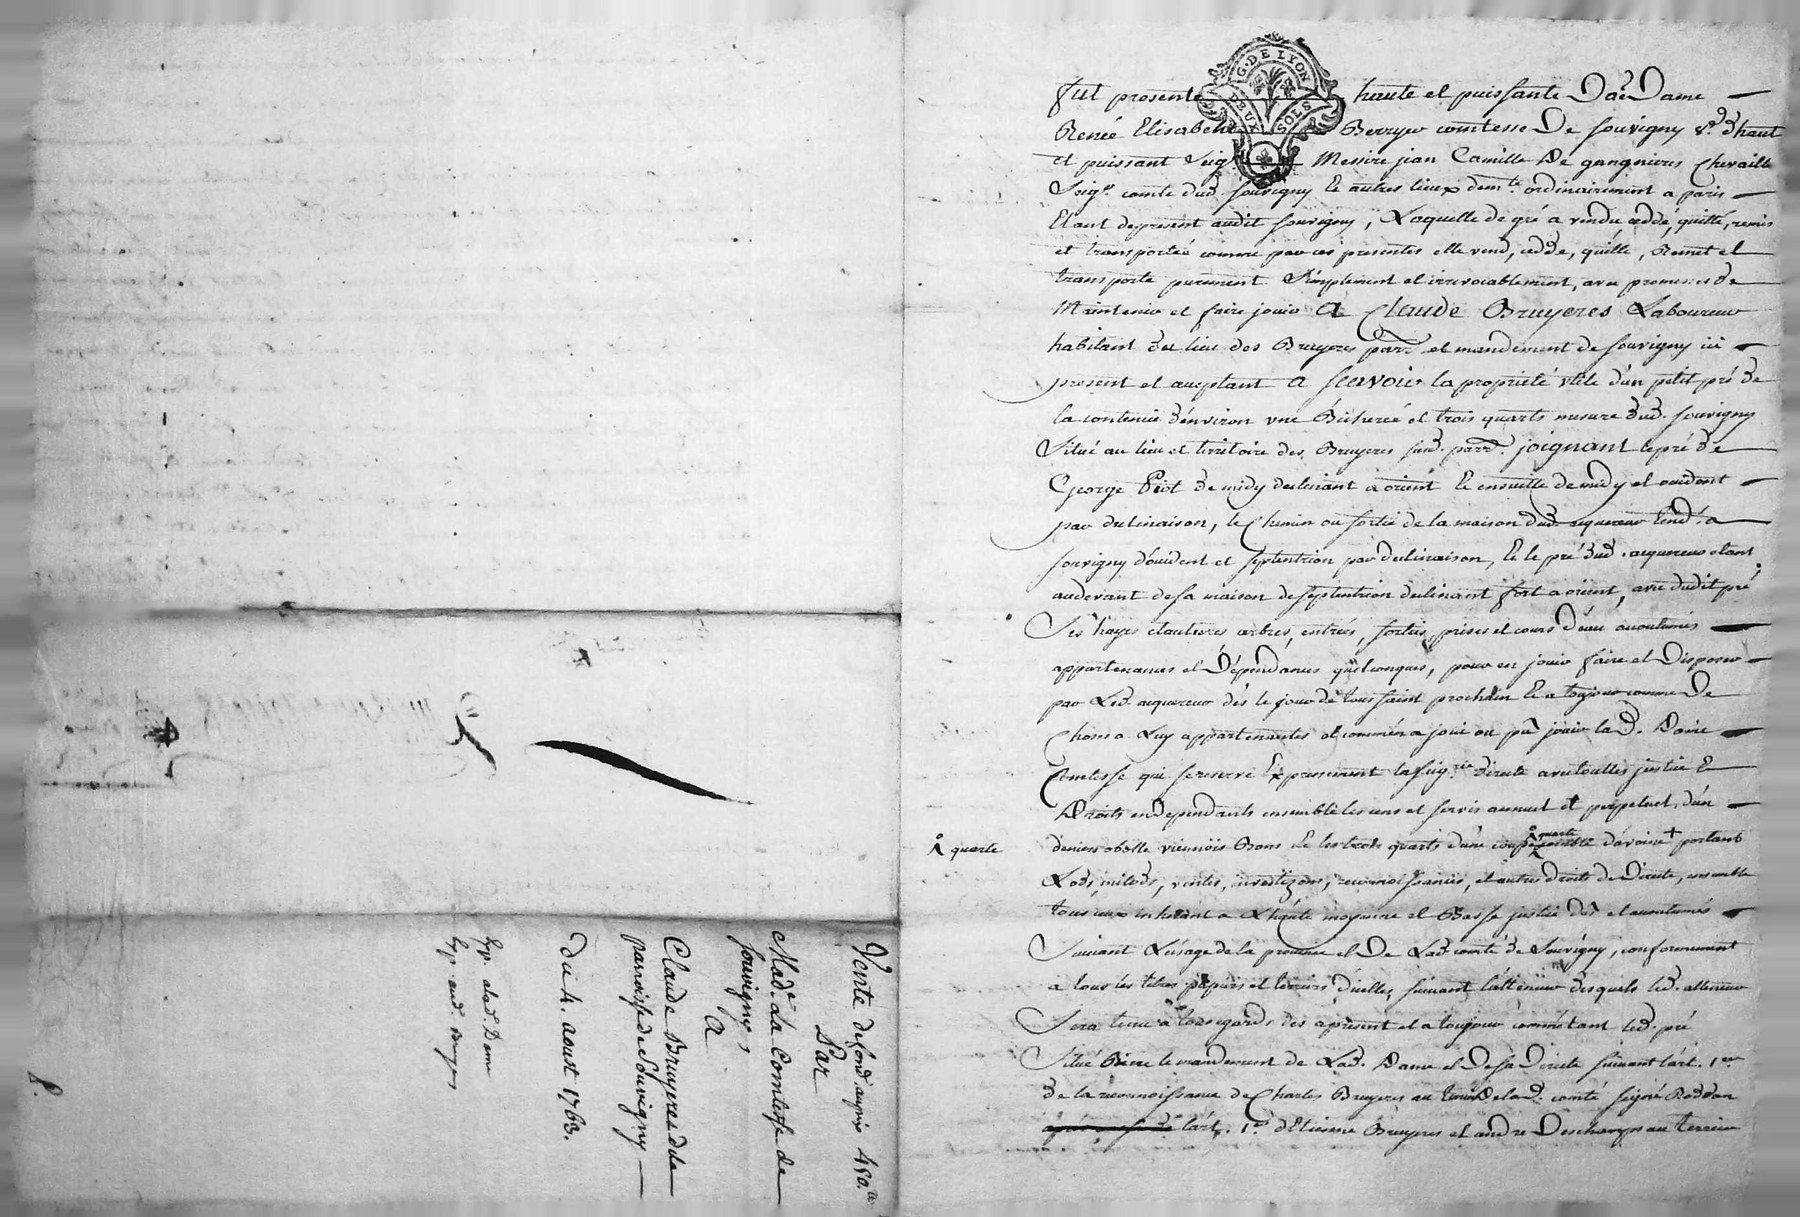 G. DE LYON
DEUX SOLS
fut presente haute et puissante Dae Dame
Renée Elisabeth Berryer comtesse De Souvigny ve d'haut
et puissant Seig Messire jian Camille De gangnieres Chevallie
Seigr. comte dud. Souvigny & autres lieux demte ordinairement a paris
Etant depresent audit Souvigny, Laquelle de gré a vendu ceddé, quitté, remis
et transporté comme par ces presentes elle vend, cedde, quitte, Remet et
transporte purement Simplement et irrevocablement, avec promesses de
Maintenir et faire jouir A Claude Bruyeres Laboureur
habitant du lieu des Bruyeres parr. et mandement de Souvigny ici
present et acceptant a Scavoir la proprieté utile d'un petit pré de
la contenue d'environ une Bicherée et trois quarts mesure dud. Souvigny
Situé au lieu et territoire des Bruyeres sud. parr. joignant le pré de
George Piot de midy declinant a orient & ensuitte de midy et occident
par declinaison, le Chemin ou sortie de la maison dud. acquereur tend. a
Souvigny d'occident et septentrion par declinaison, & le pré dud. acquereur etant
audevant de sa maison de septentrion declinant fort a orient, avec dudit pré
Ses hayes clautures arbres, entrées, sorties, prises et cours d'eau accoutumés
appartenances et Dépendances quelconques, pour en jouir faire et Disposer
par Led. acquereur dès le jour de toussaint prochain & a toujour comme De
Chose a Luy appartenantes et comme en a joui ou pû jouir lad. Dame
Comtesse qui se reserve Expressement la Seigrie directe avec touttes justice &
Droits en dependants ensemble les cens et servis annuel et perpetuel, d'un
denier obolle viennois Bons & les trois quarts d'une coupe comble d'avoine + portant
quarte
quarte
Lods, milods, ventes, investizons, reconnoissances, et autres droits de Directe, ensemble
tous ceux inherant a Lhaute moyenne et Basse justice dûs et accoutumés
Suivant L'usage de la province et De Lad. comté de Souvigny, conformement
a tous les titres papiers et terriers d'icelles, suivant la teneur desquels led. acquereur
Sera tenu a tous egards des apresent et a toujour comme etant led. pré
Situé Riere le mandement de Lad. Dame et De sa Directe suivant l'art. 1er
de la reconnoissance de Charles Bruyeres au terrier de lad. comté signé Roddon
l'art. 1er d'Etienne Bruyeres et andré Deschamps au terrier
Vente de fond. au prix 450.tt
Par
Mad.e La Comtesse de
Souvigny
A
Claude Bruyeres de la
parroisse de Souvigny
Du 4. aoust 1763.
Exp. alad. Dame
Exp. aud. Bruyeres